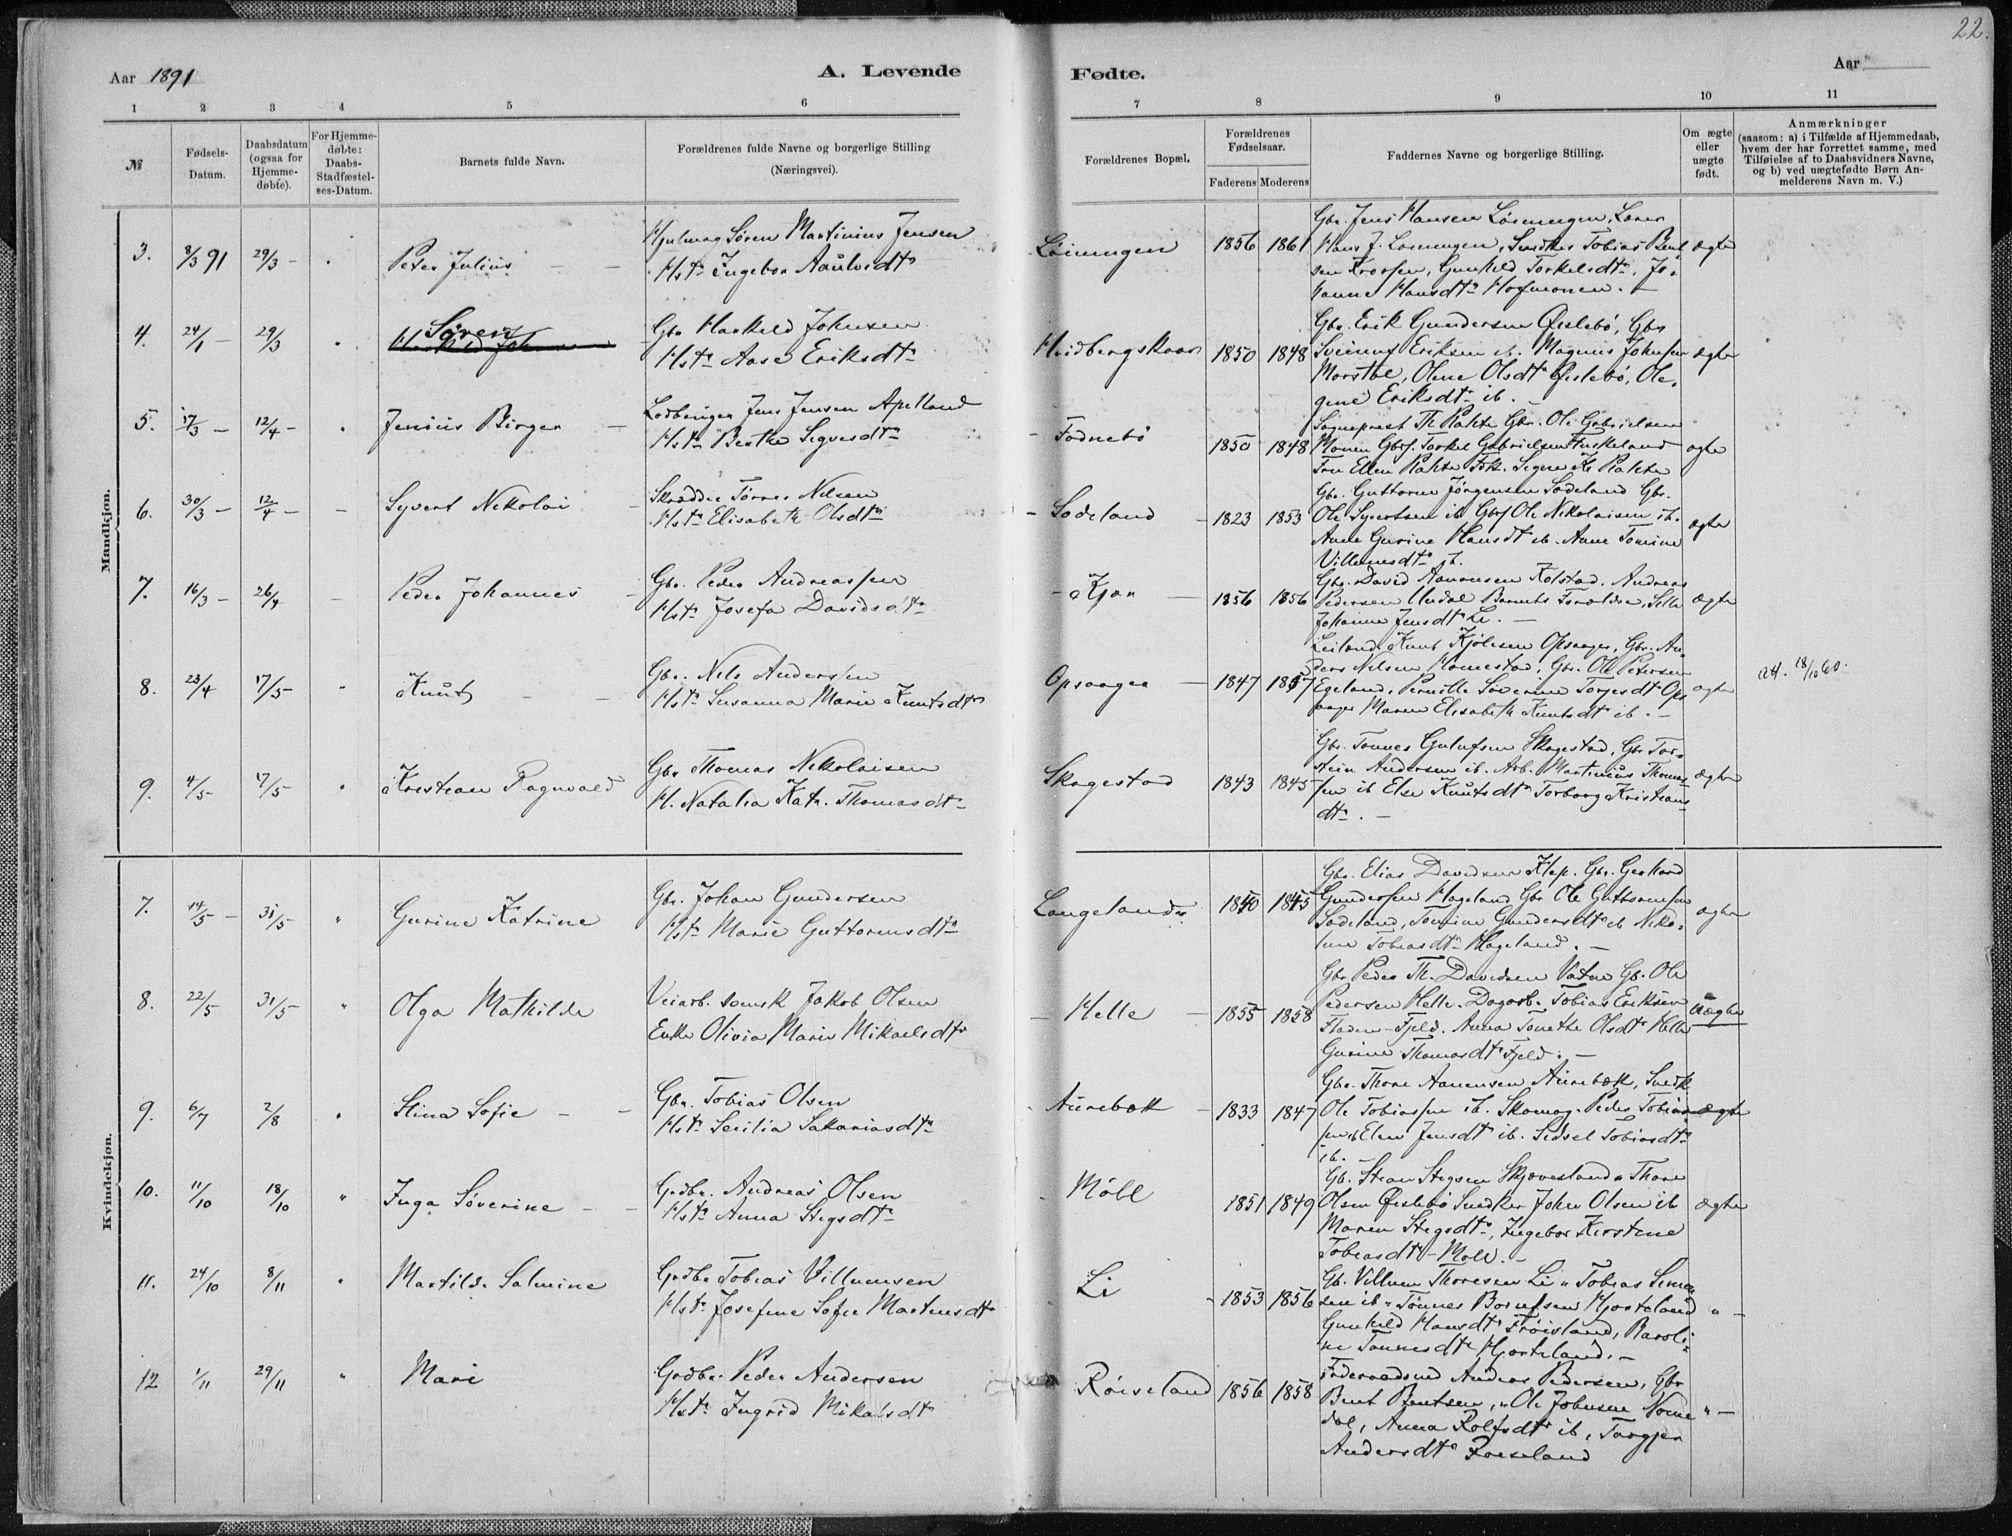 22.
Aar 1891
A. Levende
Fødte.
Aar
1 2 3 4 5 6 7 8 9 10 11
№
Fødsels-
Datum.
Daabsdatum
(ogsaa for
Hjemme-
døbte).
For Hjemme-
døbte:
Daabs-
Stadfæstel-
ses-Datum.
Barnets fulde Navn.
Forældrenes fulde Navne og borgerlige Stilling
(Næringsvei).
Forældrenes Bopæl.
Forældrenes
Fødselsaar.
Faderens Moderens
Faddernes Navne og borgerlige Stilling.
Om ægte
eller
uægte
født.
Anmærkninger
(saasom: a) i Tilfælde af Hjemmedaab,
hvem der har forrettet samme, med
Tilføielse af to Daabsvidners Navne,
og b) ved uægtefødte Børn An-
melderens Navn m. V.)
Mandkjøn.
3. 8/3 91 29/3 - Peter Julius
Hjulmag Søren Martinius Jensen
Hstr Ingebor
1856 1861
Gbr. Jens Hansen
Hans J. Smedker Tobias Bent
sen Gunhild Torkelsdtr. Jo-
hanne Hansdtr
ægte
4. 24/1 - 29/3 Søren
Gbr Harkild Johnsen
Hstr Aase Eriksdtr
Heidbergskaar 1850 1848
Gbr. Erik Gundersen Øislebö, Gbr
Eriksen ib. Magnus Johnsen
Olene Olsdtr Øislebö, Ole-
gine Eriksdtr ib.
ægte
5. 17/3 - 12/4 - Jenius Birger
Jens Jensen Apelland
Hstr Berthe Sigvesdtr
Fodnebö 1850 1848
Sogneprest Th Gbr. Ole Gabrielsen
Monen Gbrf. Torkel Gabrielsen
Fru Ellen Frk. Signe
ægte
6. 30/3 - 12/4 - Syvert Nikolai
Skrædder Tönnes Nilsen
Hstr Elisabeth Olsdtr
Sodeland 1823 1853
Gbr. Guttorm Jörgensen Sodeland Gbr.
Ole Syvertsen ib Gbrf Ole Nikolaisen ib.
Anne Gurine Hansdt ib. Anne Tomine
Villumsdtr ib.
ægte
7. 16/3 - 26/4 Peder Johannes
Gbr. Peder Andreassen
Hstr Josefa Davidsdtr
Kjær 1856 1856
Gbr. David Aanonsen Kolstad. Andreas
Pedersen Undal Barnets Forældre, Silla
Johanne Jensdtr Li.
ægte
8. 23/4 17/5 Knut
Gbr. Nils Anderssen
Hstr Susanna Marie Knutsdtr
Opsanger 1847 1857
Leiland Knut Kjölsen Opsanger, Gbr. An-
ders Nilsen Homestad, Gbr. Ole Petersen
Egeland, Pernille Severine Torjesdtr Op-
sanger Maren Elisabeth Knutsdtr ib.
ægte
att. 18/10 60.
9. 4/5 17/5 Kristian Ragnvald
Gbr Thomas Nikolaisen
H. Natalia Katr. Thomasdtr
Skagestad 1843 1845
Gbr. Tönnes Gulufsen Skagestad, Gbr Tor-
stein Andersen ib. Arb. Martinius Thomas-
sen ib Else Knutsdtr Torborg Kristians-
dtr.
ægte
Kvindekjøn.
7. 14/5 - 31/5 " Gurine Katrine
Gbr. Johan Gundersen
Hstr Marie Guttormsdtr
Langeland 1840 1845
Gbr. Elias Davidsen Klep. Gbr. Gerhard
Gundersen Hageland Gbr Ole Guttormsen
Sodeland, Tomine Gundersdtr ib Niko-
line Tobiasdtr Hageland.
ægte
8. 22/5 31/5 " Olga Mathilde
Veiarb. svensk Jakob Olsen
Enke Olivia Marie Mikaelsdtr
Helle 1855 1858
Gbr Peder Th. Davidsen Vatne Gb. Ole
Pedersen Helle. Dagarb. Tobias Eriksen
Fjeld. Anna Tonette Olsdtr Helle
Gurine Thomasdtr Fjeld.
uægte
9. 6/7 2/8 " Stina Sofie
Gbr. Tobias Olsen
Hstr Secilia Sakariasdtr
Aurebæk 1833 1847
Gbr. Thore Aanensen Aurebæk, Snedk
Ole Tobiassen ib. Skomag. Peder Tobias-
sen ib Elen Jensdtr ib. Sidsel Tobiasdtr
ib.
ægte
10. 11/10 18/10 " Inga Severine
Grdbr. Andreas Olsen
Hstr Anna Stegsdtr
Möll 1851 1849
Gb. Stian Stegsen Skjævesland " Thore
Olsen Øislebö Snedker John Olsen ib
Maren Stegsdtr, Ingebor Kirstine
Tobiasdtr Moll.
ægte
11. 24/10 8/11 " Martilde Salmine
Grdbr Tobias Villumsen
Hstr Josefine Sofie Martensdtr
Li 1853 1856
Gb. Villum Thoresen Li " Tobias Simon
sen ib " Tønnes Hjorteland
Gunhild Hansdtr Fröisland, Karoli-
ne Tönnesdtr Hjorteland.
" -
12 1/11 29/11 " Mari
Grdbr. Peder Andersen
Hstr. Ingrid Mikalsdtr
Röiseland 1856 1858
Föderaadsmd Anders Pedersen, Gbr
Bent Bentsen, " Ole Johnsen Nome-
dal, Anna Rolfsdtr ib, Torgjer
Andersdtr Roiseland
" -